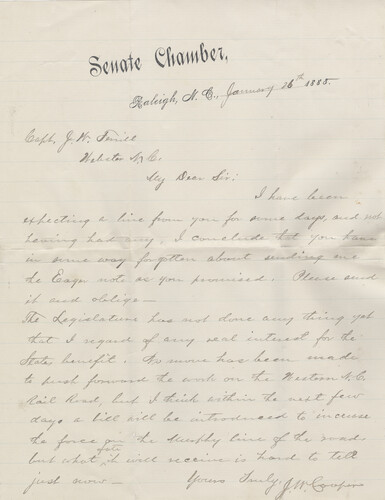 Senate Chamber,
Raleigh, N. C., January 26th 1885.
Capt. J. W. Terrell
Webster N. C.
My Dear Sir:
I have been
expecting a line from you for some days, and not
having had any, I conclude that you have
in some way forgotten about sending me
the note as you promised. Please send
it and oblige—
The Legislature has not done any thing yet
that I regard of any real interest for the
States benefit. No move has been made
to push forward the work on the Western N.C.
Rail Road, but I think within the next few
days a bill will be introduced to increase
the force on the Murphy line of the road
but what fate it will receive is hard to tell
just now— Yours Truly, J. W. Cooper